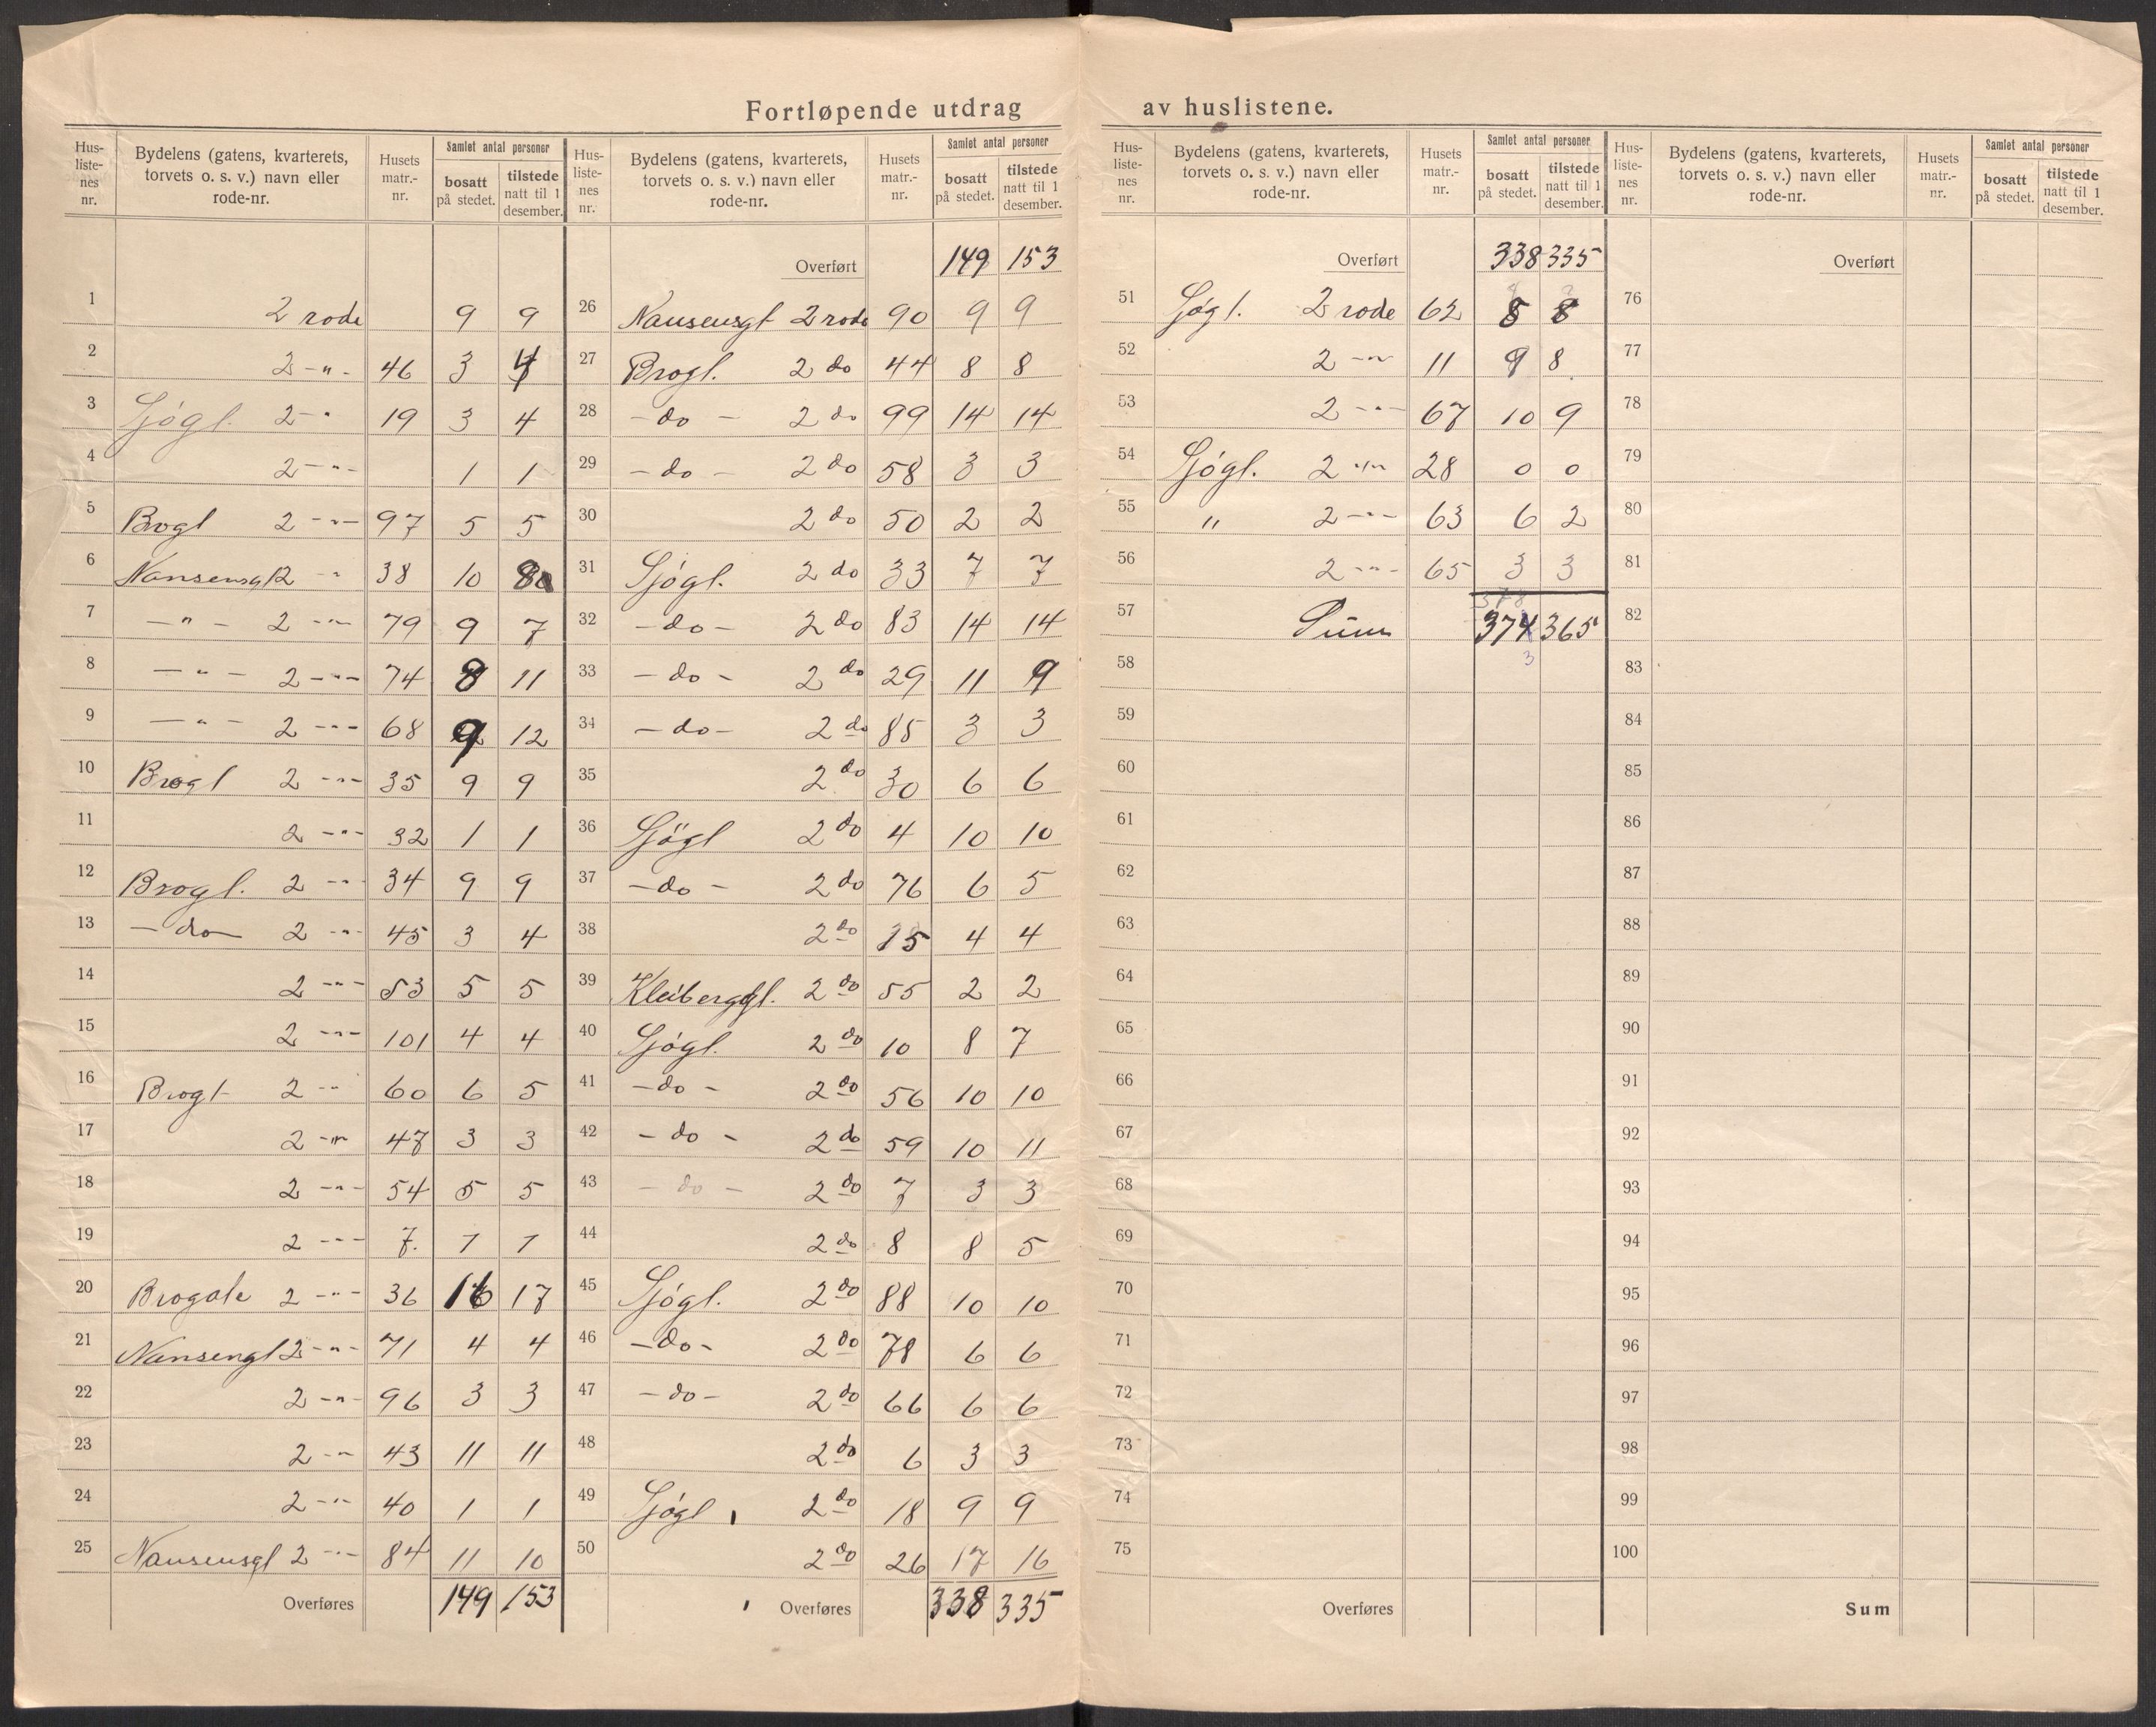 Fortløpende utdrag av huslistene.
Hus-liste-nes nr. Bydelens (gatens, kvarterets, torvets o. s. v.) navn eller rode-nr. Husets matr.-nr. Samlet antal personer bosatt på stedet. tilstede natt til 1 desember.
1 2 rode 9 9
2 2 -"- 46 3 4
3 Sjøgt. 2 -"- 19 3 4
4 2 -"- 1 1
5 Brogt 2 -"- 97 5 5
6 Nansensgt 2 -"- 38 10
7 -"- 2 -"- 79 9 7
8 -"- 2 -"- 74 8 11
9 -"- 2 -"- 68 9 12
10 Brogt 2 -"- 35 9 9
11 2 -"- 32 1 1
12 Brogt. 2 -"- 34 9 9
13 -do- 2 -"- 45 3 4
14 2 -"- 53 5 5
15 2 -"- 101 4 4
16 Brogt 2 -"- 60 6 5
17 2 -"- 47 3 3
18 2 -"- 54 5 5
19 2 -"- 7. 1 1
20 Brogate 2 -"- 36 16 17
21 Nansengt 2 -"- 71 4 4
22 2 -"- 96 3 3
23 2 -"- 43 11 11
24 2 -"- 40 1 1
25 Nansensgt 2 -"- 84 11 10
Overføres 149 153
Hus-liste-nes nr. Bydelens (gatens, kvarterets, torvets o. s. v.) navn eller rode-nr. Husets matr.-nr. Samlet antal personer bosatt på stedet. tilstede natt til 1 desember.
Overført 149 153
26 Nansensgt 2 rode 90 9 9
27 Brogt. 2 do 44 8 8
28 -do- 2 do 99 14 14
29 -do- 2 do 58 3 3
30 2 do 50 2 2
31 Sjøgt. 2 do 33 7 7
32 -do- 2 do 83 14 14
33 -do- 2 do 29 11 9
34 -do- 2 do 85 3 3
35 2 do 30 6 6
36 Sjøgt 2 do 4 10 10
37 -do- 2 do 76 6 5
38 2 do 15 4 4
39 Kleiberggt. 2 do 55 2 2
40 Sjøgt. 2 do 10 8 7
41 -do- 2 do 56 10 10
42 -do- 2 do 59 10 11
43 -do- 2 do 7 3 3
44 2 do 8 8 5
45 Sjøgt. 2 do 88 10 10
46 -do- 2 do 78 6 6
47 -do- 2 do 66 6 6
48 2 do 6 3 3
49 Sjøgt 2 do 18 9 9
50 2 do 26 17 16
Overføres 338 335
Hus-liste-nes nr. Bydelens (gatens, kvarterets, torvets o. s. v.) navn eller rode-nr. Husets matr.-nr. Samlet antal personer bosatt på stedet. tilstede natt til 1 desember.
Overført 338 335
51 Sjøgt. 2 rode 62 8 8
52 2 -"- 11 9 8
53 2 -"- 67 10 9
54 Sjøgt. 2 -"- 28 0 0
55 " 2 -"- 63 6 2
56 2 -"- 65 3 3
378
57 Sum 374 365
3
58
59
60
61
62
63
64
65
66
67
68
69
70
71
72
73
74
75
Overføres
Hus-liste-nes nr. Bydelens (gatens, kvarterets, torvets o. s. v.) navn eller rode-nr. Husets matr.-nr. Samlet antal personer bosatt på stedet. tilstede natt til 1 desember.
Overført
76
77
78
79
80
81
82
83
84
85
86
87
88
89
90
91
92
93
94
95
96
97
98
99
100
Sum